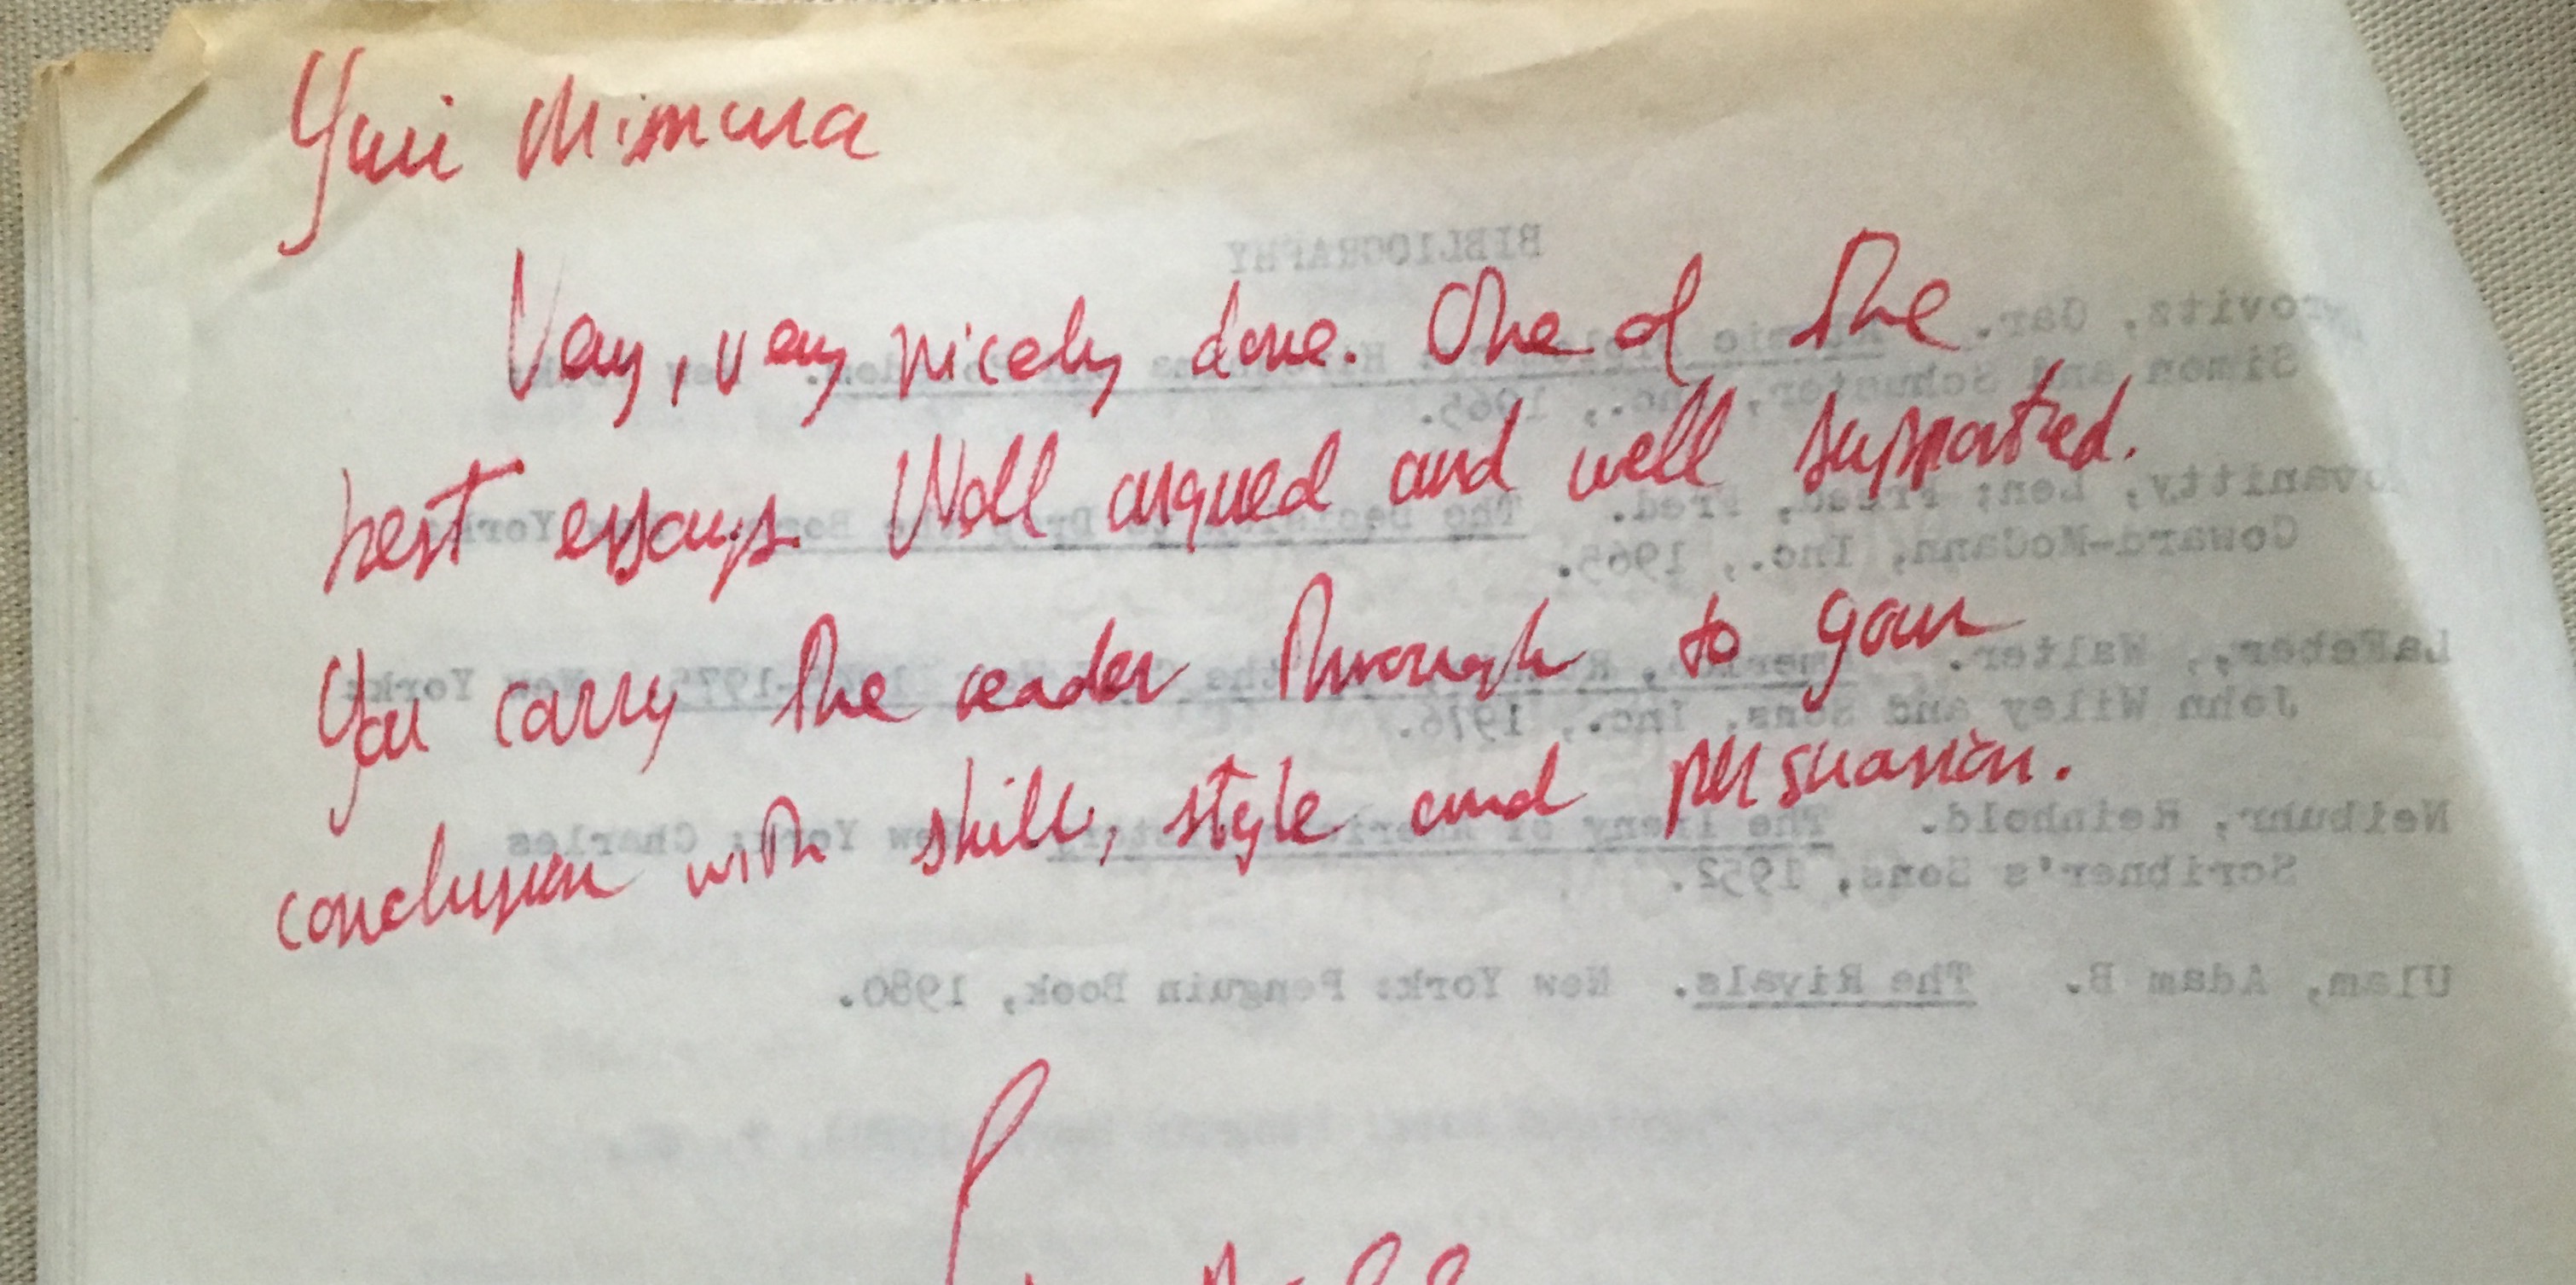 Yuri Mimura
Very, very nicely done. One of the
best essays. Well argued and well supported.
You carry the reader through to your
conclusion with skill, style and persuasion.
BIBLIOGRAPHY
Simon and Schuster, Inc., 1965.
Len; Freed, Fred. The Decision to Drop the Bomb. New York:
Coward-McCann, Inc., 1965.
LaFeber,, Walter. America, Russia, the Cold War 1945-1975. New York:
John Wiley and Sons, Inc., 1976.
Neibuhr, Reinhold. The Irony of American History. New York: Charles
Scribner's Sons, 1952.
Ulam, Adam B. The Rivals. New York: Penguin Book, 1980.